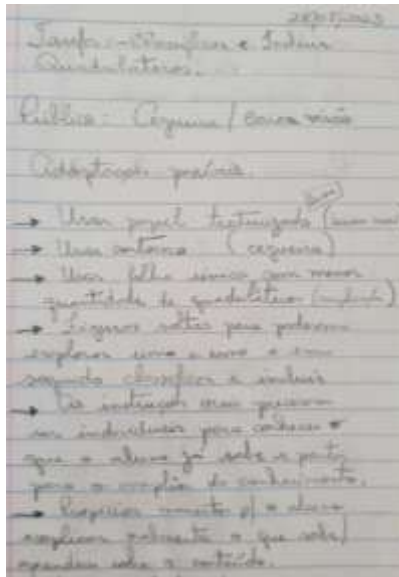 Tarefa - Classificar e Incluir
Quadriláteros.
Público: Cegueira / baixa visão
Adaptação
→ Usar papel texturizado (baixa
→ Usar contorno (cegueira)
→ Usar folha única com menor
quantidade de quadriláteros
→ Figuras soltas para poderem
explorar uma a uma e em
seguida classificar e incluir
→ As instruções
ser individuais para conhecer o
que o aluno já sabe e partir
para a ampliação do conhecimento.
→ Propiciar momento p/ o aluno
explicar o que sabe/
aprendeu sobre o conteúdo.